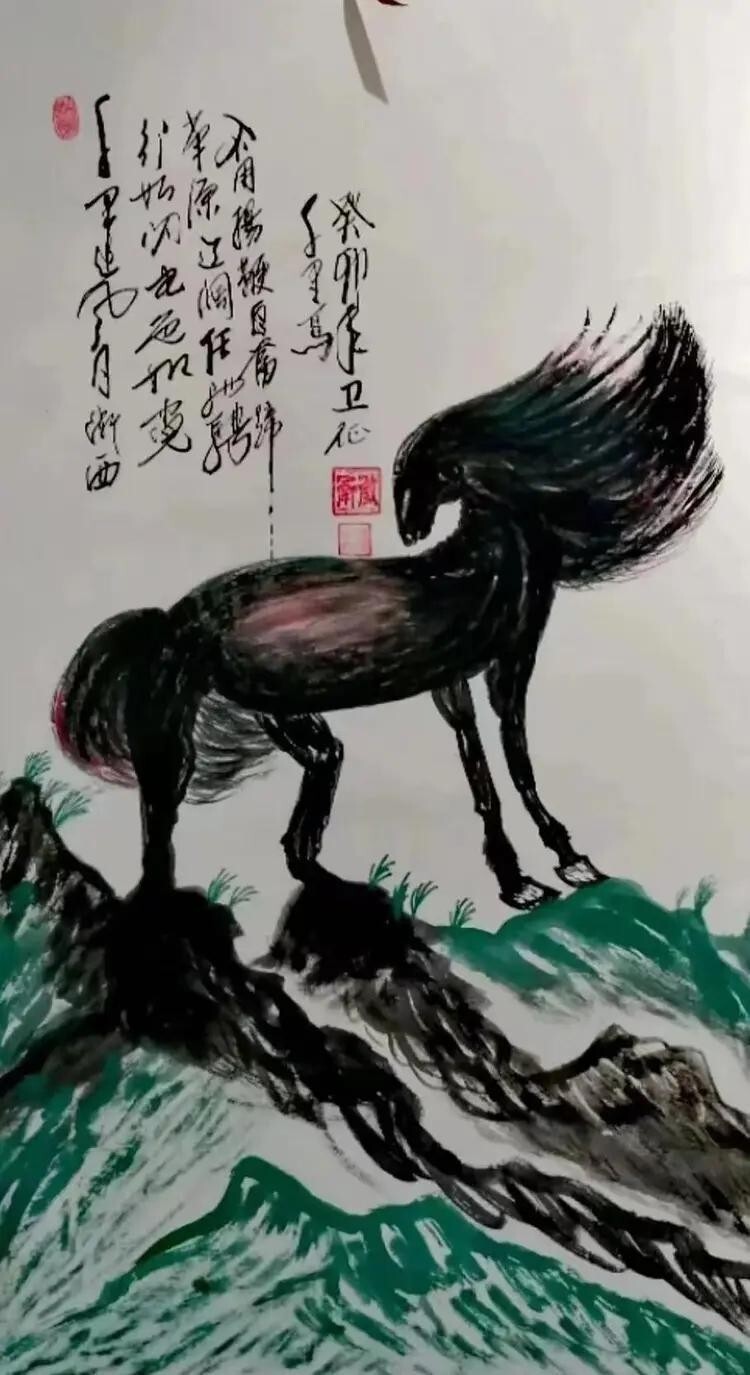 癸卯年卫征
千里马
不用扬鞭自奋蹄
草原辽阔任驰骋
行如闪电
千里追风月